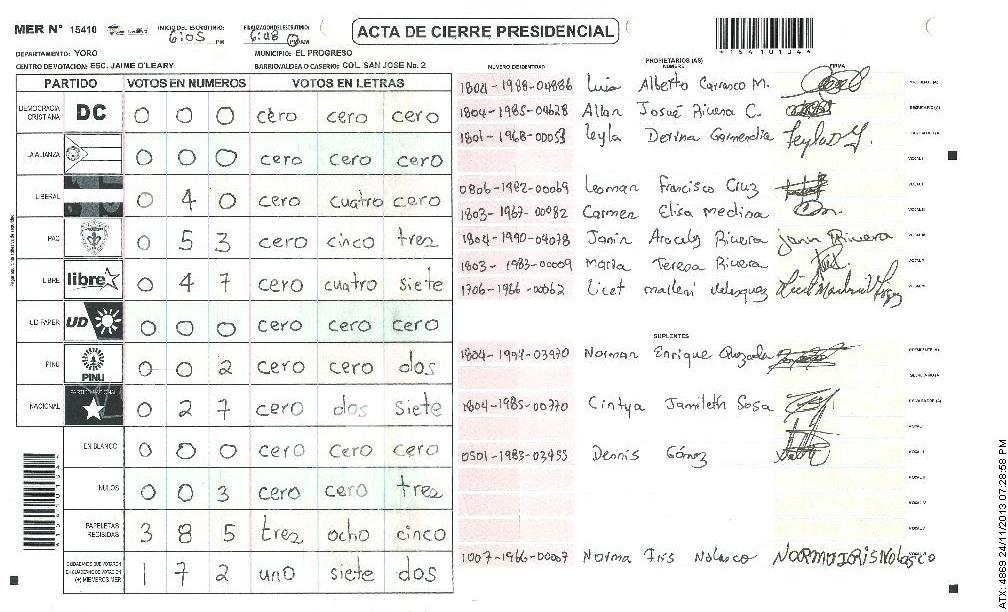 MER N° 15410 INICIO DEL ESCRUTINIO: 6:05 PM FINALIZACION DEL ESCRUTINIO: 6:48 PM ACTA DE CIERRE PRESIDENCIAL
154101344
DEPARTAMENTO: YORO MUNICIPIO: EL PROGRESO
CENTRO DE VOTACION: ESC. JAIME O'LEARY BARRIO/ALDEA O CASERIO: COL. SAN JOSE No. 2
PARTIDO VOTOS EN NUMEROS VOTOS EN LETRAS
DEMOCRACIA CRISTIANA DC 0 0 0 cero cero cero
LA ALIANZA 0 0 0 cero cero cero
LIBERAL 0 4 0 cero cuatro cero
PAC 0 5 3 cero cinco tres
LIBRE libre 0 4 7 cero cuatro siete
UD FAPER UD 0 0 0 cero cero cero
PINU PINU 0 0 2 cero cero dos
NACIONAL 0 2 7 cero dos siete
EN BLANCO 0 0 0 cero cero cero
NULOS 0 0 3 cero cero tres
PAPELETAS RECIBIDAS 3 8 5 tres ocho cinco
CIUDADANOS QUE VOTARON EN CUADERNO DE VOTACION (+) MIEMBROS MER 1 7 2 uno siete dos
PROPIETARIOS (AS)
NUMERO DE IDENTIDAD NOMBRE FIRMA
1804-1988-04886 Luis Alberto Carrasco M.
1804-1985-04628 Allan Josué Rivera C.
1801-1968-00053 Leyla Derina Garmendia
0806-1982-00069 Leoman Francisco Cruz
1803-1967-00082 Carmen Elisa Medina
1804-1990-04078 Janin Aracely Rivera Janin Rivera
1803-1983-00009 Maria Teresa Rivera
1706-1966-00062 Licet Marleni Velasquez
SUPLENTES
1804-1994-03970 Norman Enrique Quezada
1804-1985-00770 Cintya Jamileth Sosa
0501-1983-03455 Dennis Gómez
1007-1966-00067 Norma Iris Nolasco NORMA IRIS Nolasco
ATX: 4869 24/11/2013 07:28:58 PM